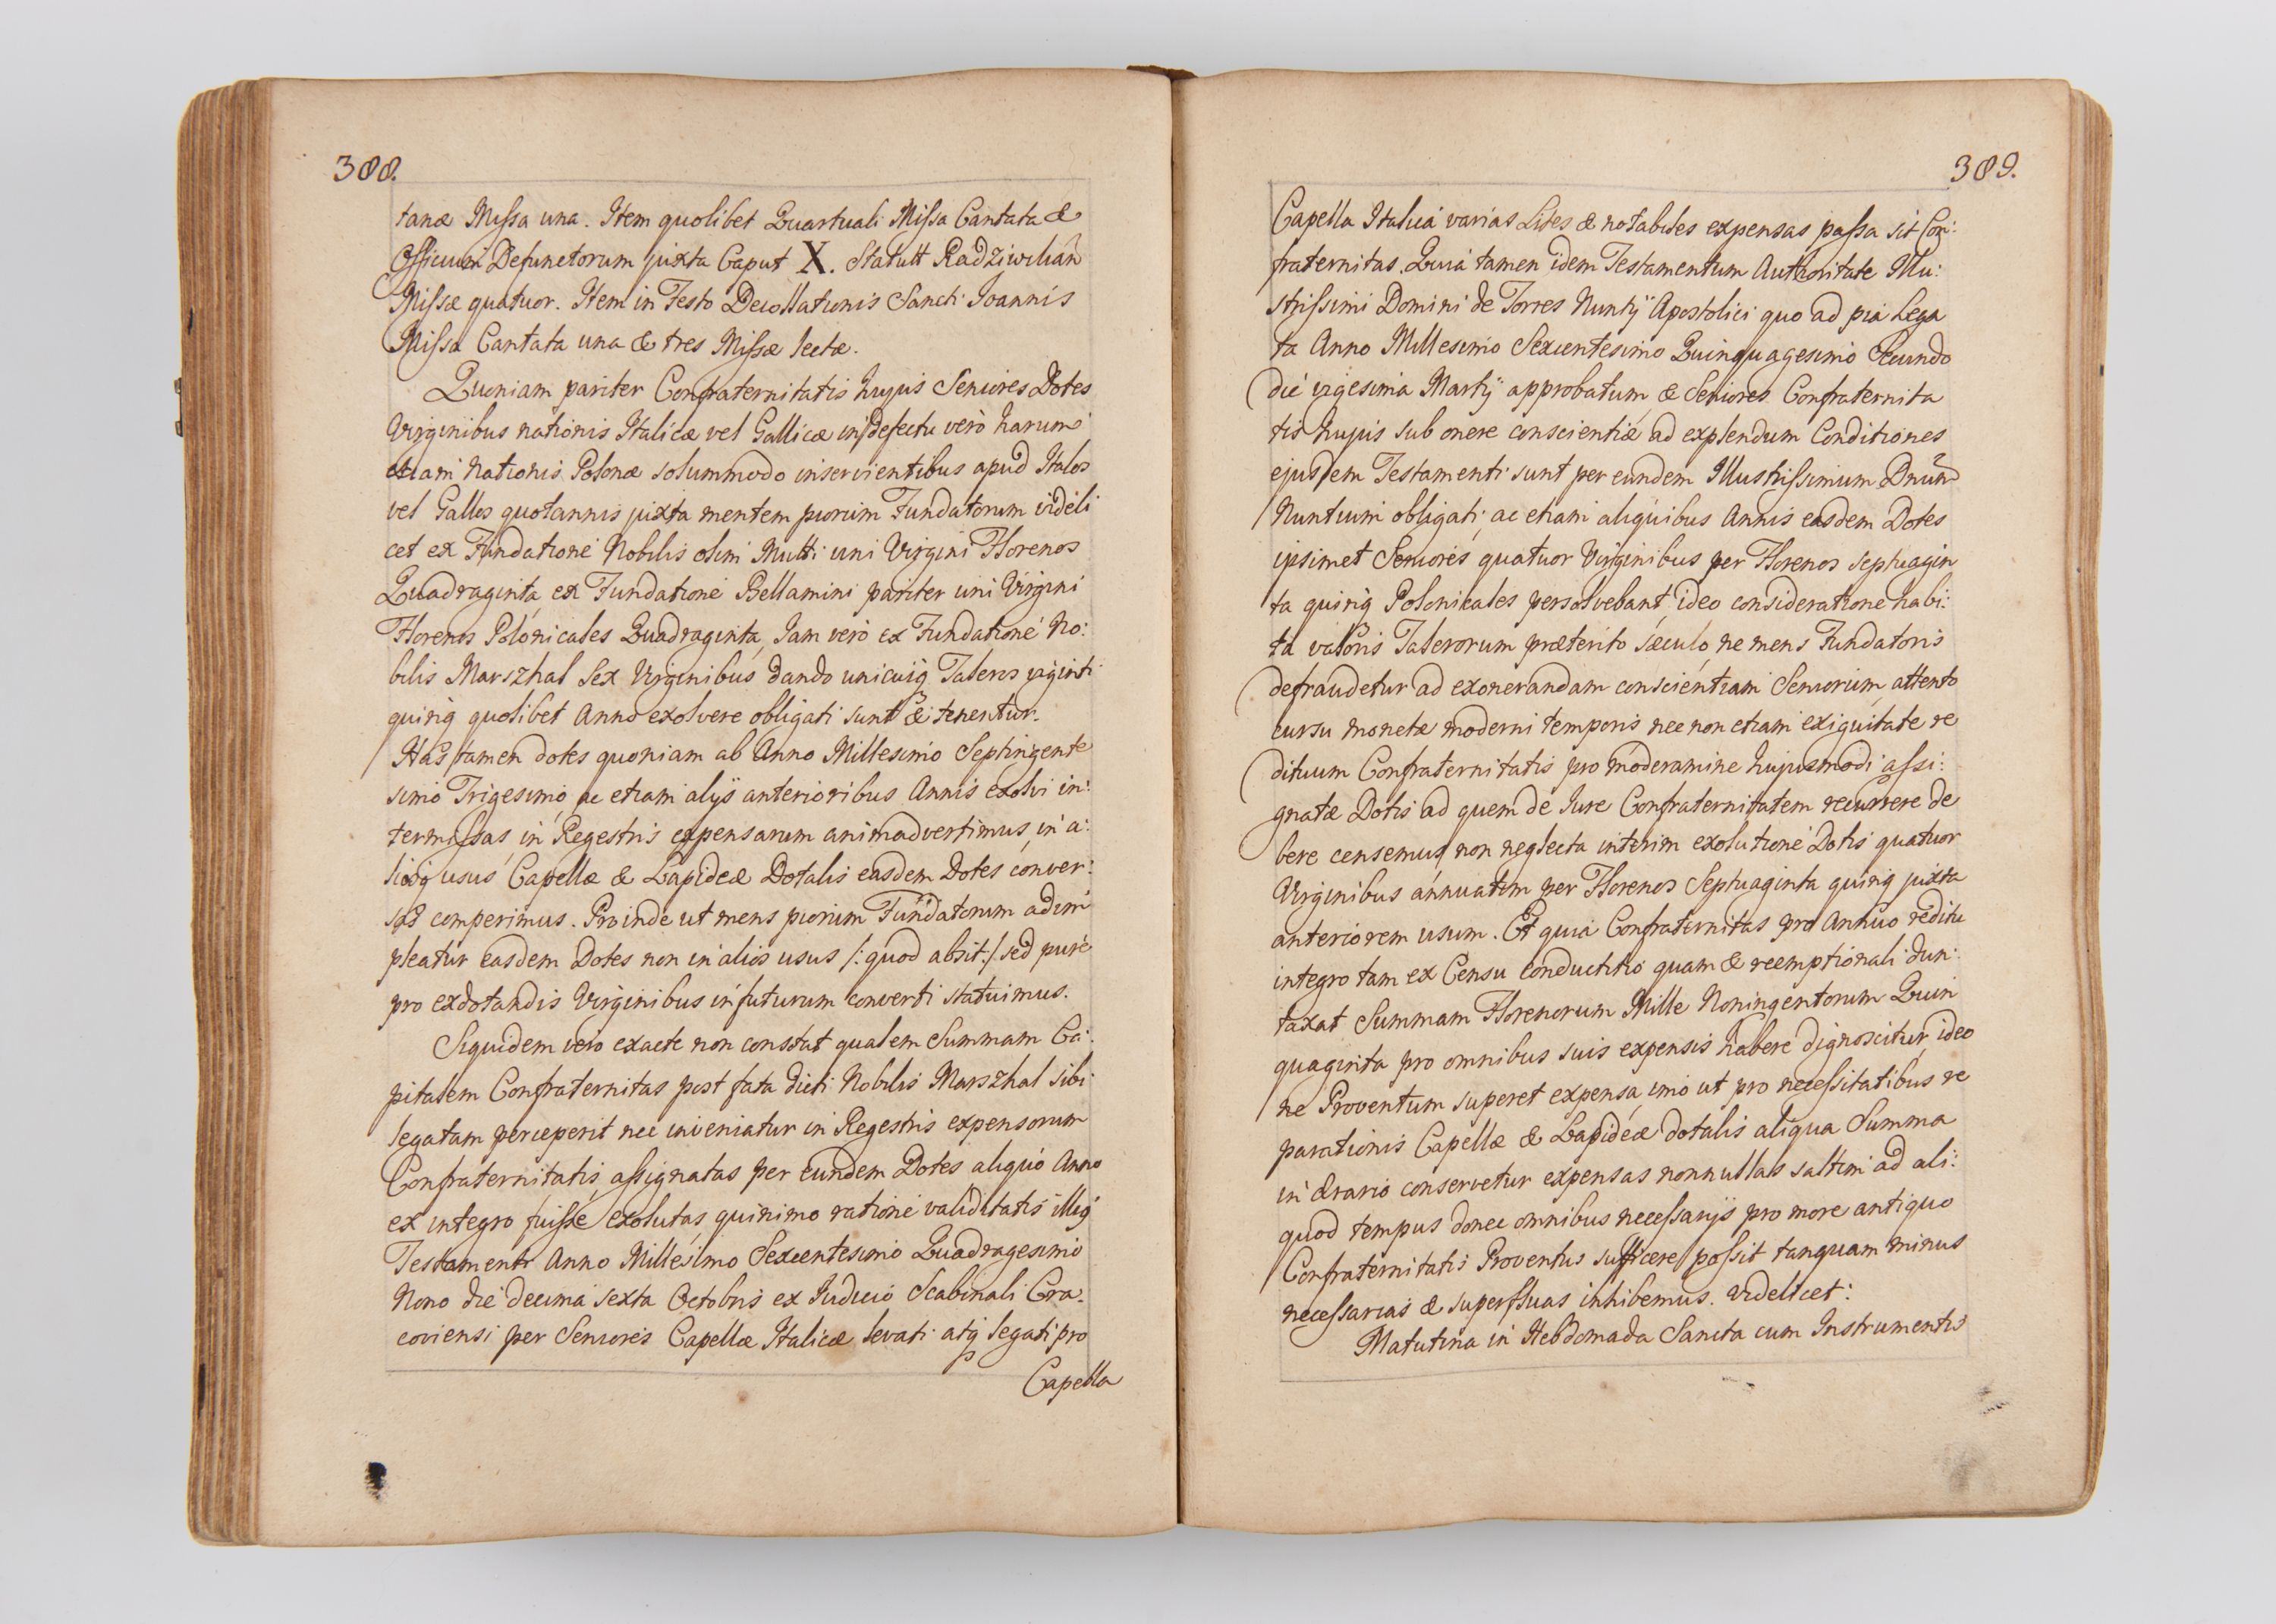 388.
tanæ Missa una. Item quolibet Quartuali Missa Cantata &
Officium Defunctorum juxta Caput X. Statutt Radziwilian
Missæ quatuor. Item in Festo Decollationis Sancti Joannis
Missa Cantata una & tres Missæ lectæ.
Quoniam pariter Confraternitatis hujus Seniores Dotes
Virginibus nationis Italicæ vel Gallicæ in defectu verò harum
etiam Nationis Polonæ solummodo inservientibus apud Italos
vel Gallos quotannis juxta mentem piorum Fundatorum videli
cet ex Fundatione Nobilis olim Mutti uni Virgini Florenos
Quadraginta, ex Fundatione Bellamini pariter uni Virgini
Florenos Polonicales Quadraginta, Jam verò ex Fundatione No:
bilis Marszhal Sex Virginibus dando unicuiq Taleros viginti
quinq quolibet Anno exolvere obligati sunt & tenentur.
Has tamen dotes quoniam ab Anno Millesimo Septingente
simo Trigesimo, ac etiam alÿs anterioribus Annis exolvi in:
termissas in Regestris expensarum animadvertimus, in a:
liosq usus Capellæ & Lapideæ Dotalis easdem Dotes conver:
sas comperimus. Proinde ut mens piorum Fundatorum adim
pleatur easdem Dotes non in alios usus /: quod absit :/ sed purè
pro exdotandis Virginibus in futurum converti statuimus.
Siquidem vero exacte non constat qualem Summam Ca:
pitalem Confraternitas post fata dicti Nobilis Marszhal sibi
legatam perceperit nec inveniatur in Regestris expensorum
Confraternitatis, assignatas per eundem Dotes aliquo Anno
ex integro fuisse exolutas, quinimo ratione validitatis illiq
Testamenti Anno Millesimo Sexcentesimo Quadragesimo
Nono die decima sexta Octobris ex Judicio Scabinali Cra:
coviensi per Seniores Capellæ Italicæ levati atq legati pro
Capella
389.
Capella Italica varias Lites & notabiles expensas passa sit Con:
fraternitas. Quia tamen idem Testamentum Authoritate Illu:
strissimi Domini de Torres Nuntÿ Apostolici quo ad pia Lega
ta Anno Millesimo Sexcentesimo Quinquagesimo Secundo
die vigesima Martÿ approbatum, & Seniores Confraternita
tis hujus sub onere conscientiæ ad explendum Conditiones
ejusdem Testamenti sunt per eundem Illustrissimum Dnum
Nuntium obligati, ac etiam aliquibus Annis easdem Dotes
ipsimet Seniores quatuor Virginibus per Florenos septuagin
ta quinq Polonicales persolvebant, ideo consideratione habi:
ta valoris Talerorum præterito sæculo, ne mens Fundatoris
defraudetur ad exonerandam conscientiam Seniorum, attento
cursu monetæ moderni temporis nec non etiam exiguitate re
dituum Confraternitatis pro moderamine hujusmodi assi:
gnatæ Dotis ad quem de Jure Confraternitatem recurrere de
bere censemus, non neglecta interim exolutione Dotis quatuor
Virginibus annuatim per Florenos Septuaginta quinq juxta
anteriorem usum. Et quia Confraternitas pro Annuo reditu
integro tam ex Censu conductitio quam & reemptionali dun:
taxat Summam Florenorum Mille Noningentorum Quin
quaginta pro omnibus suis expensis habere dignoscitur, ideo
ne Proventum superet expensa, imo ut pro necessitatibus re
parationis Capellæ & Lapideæ dotalis aliqua Summa
in ærario conservetur expensas nonnullas saltim ad ali:
quod tempus donec omnibus necessarÿs pro more antiquo
Confraternitatis Proventus sufficere possit tanquam minus
necessarias & superfluas inhibemus. videlicet:
Matutina in Hebdomada Sancta cum Instrumentis